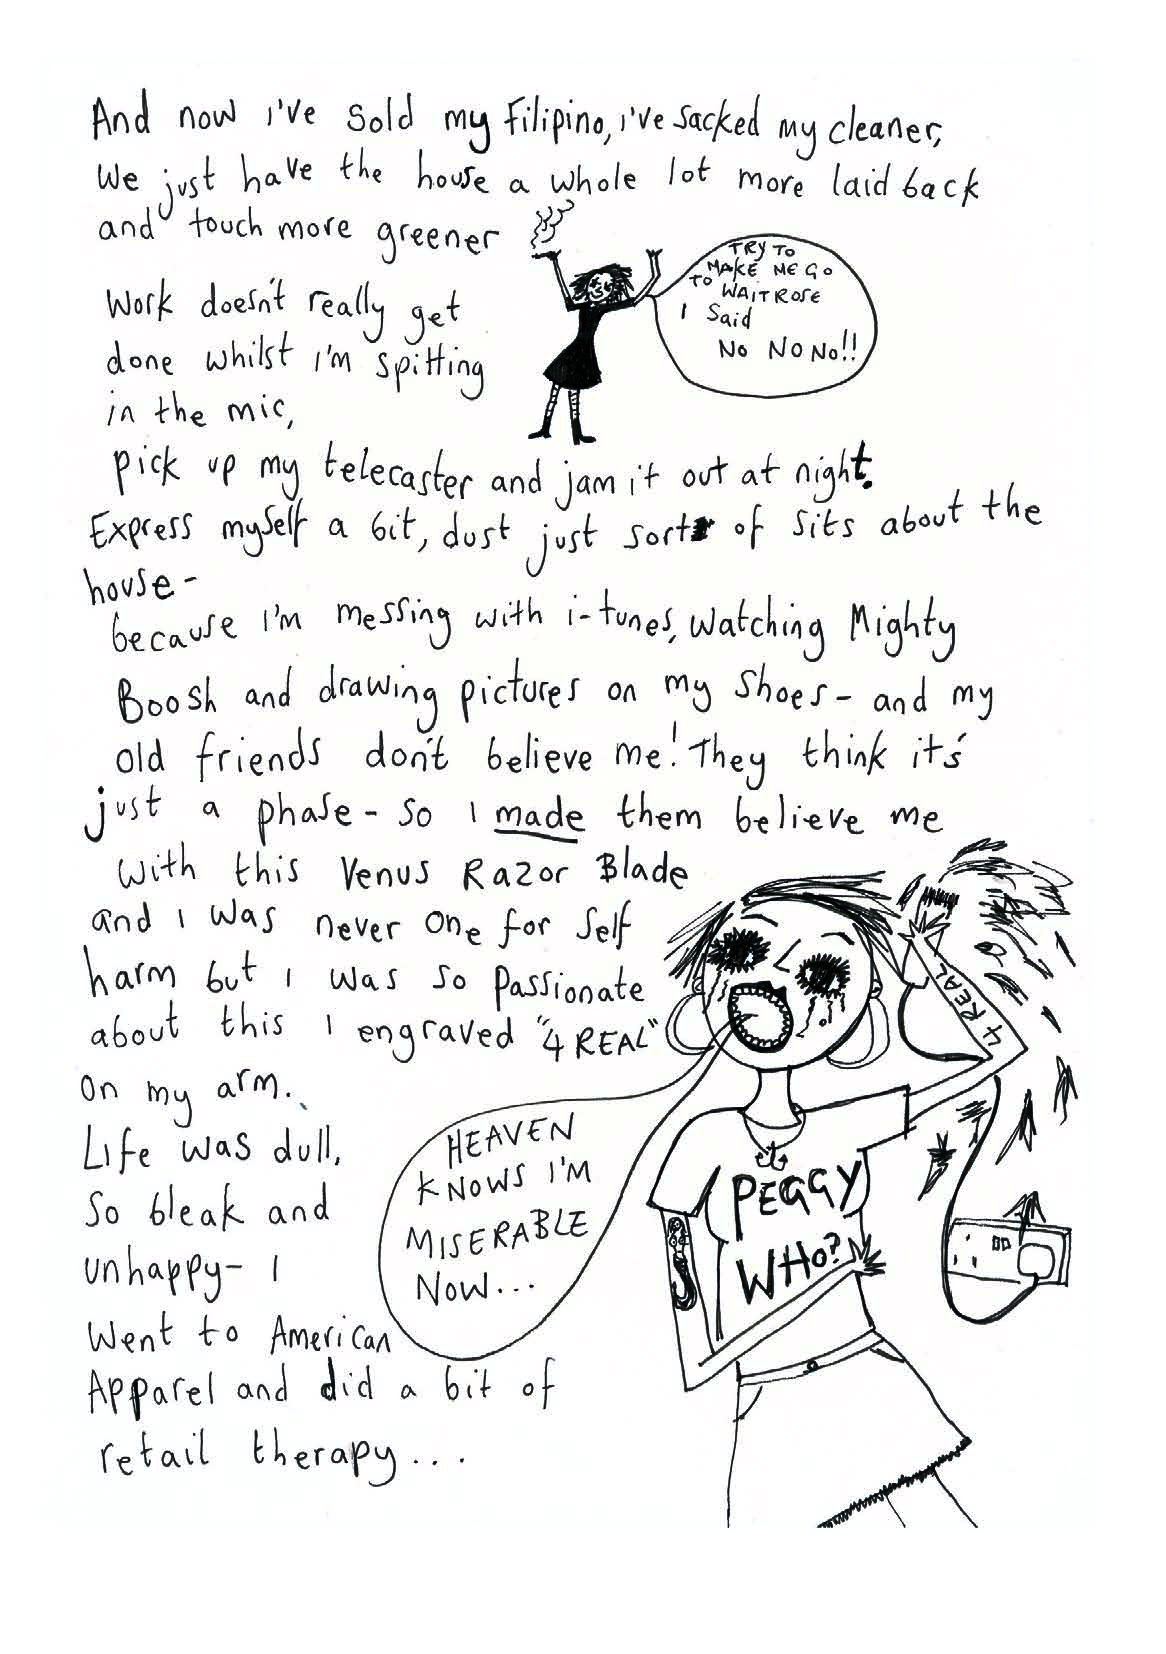 And now i've sold my Filipino, i've sacked my cleaner,
We just have the house a whole lot more laid back
and touch more greener
TRY TO
MAKE ME GO
TO WAITROSE
I Said
NO NO NO!!
Work doesn't really get
done whilst I'm spitting
in the mic,
pick up my telecaster and jam it out at night.
Express myself a bit, dust just sort of sits about the
house-
because I'm messing with i-tunes, watching Mighty
Boosh and drawing pictures on my shoes- and my
old friends don't believe me! They think it's
just a phase- so I made them believe me
with this Venus Razor Blade
and I was never one for self
harm but I was so passionate
about this I engraved "4 REAL"
on my arm.
Life was dull,
So bleak and
unhappy- I
went to American
Apparel and did a bit of
retail therapy...
HEAVEN
KNOWS I'M
MISERABLE
NOW...
4 REAL
PEGGY
WHO?